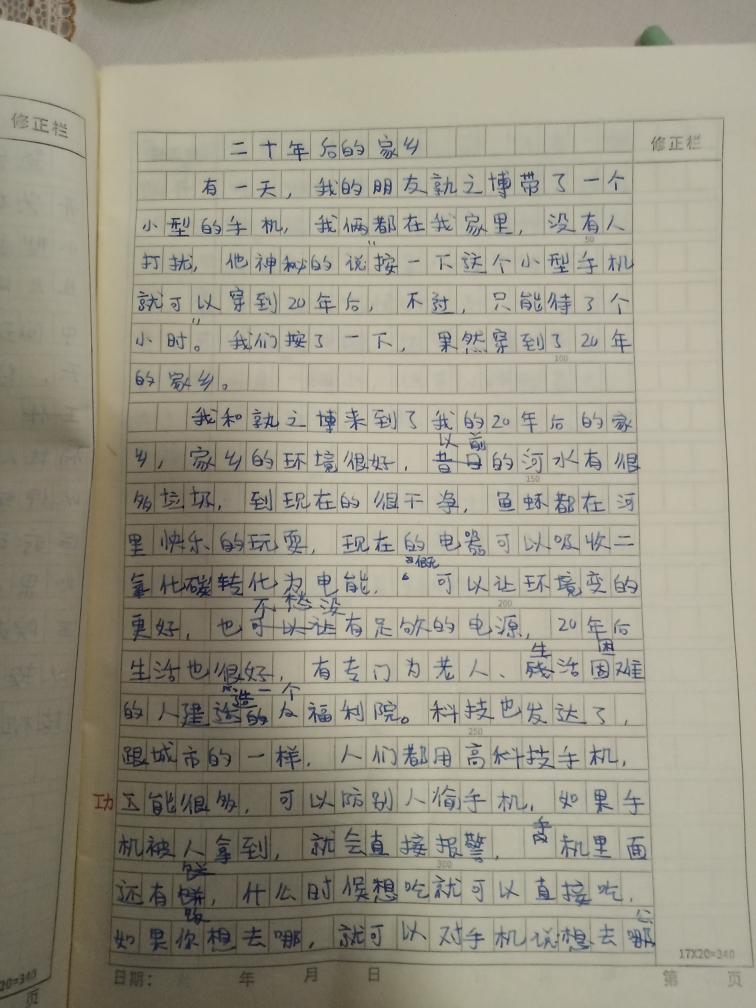 修正栏
修正栏
二十年后的家乡
有一天，我的朋友孰之博带了一个
小型的手机，我俩都在我家里，没有人
50
打扰，他神秘的说按一下这个小型手机
就可以穿到20年后，不过，只能待了个
小时。我们按了一下，果然穿到了20年
100
的家乡。
我和孰之博来到了我的20年后的家
以前
乡，家乡的环境很好，昔日的河水有很
150
多垃圾，到现在的很干净，鱼虾都在河
里快乐的玩耍，现在的电器可以吸收二
氧化碳转化为电能，可以让环境变的
不愁没
200
更好，也可以让有足够的电源，20年后
生 困
生活也很好，有专门为老人、残活困难
造一个
的人建造的福利院。科技也发达了，
250
跟城市的一样，人们都用高科技手机，
功
能很多，可以防别人偷手机，如果手
机被人拿到，就会直接报警，手机里面
300
还有饼，什么时候想吃就可以直接吃，
如果你想去哪，就可以对手机说想去哪
17X20=340
20=340
日期： 年 月 日
第 页
页